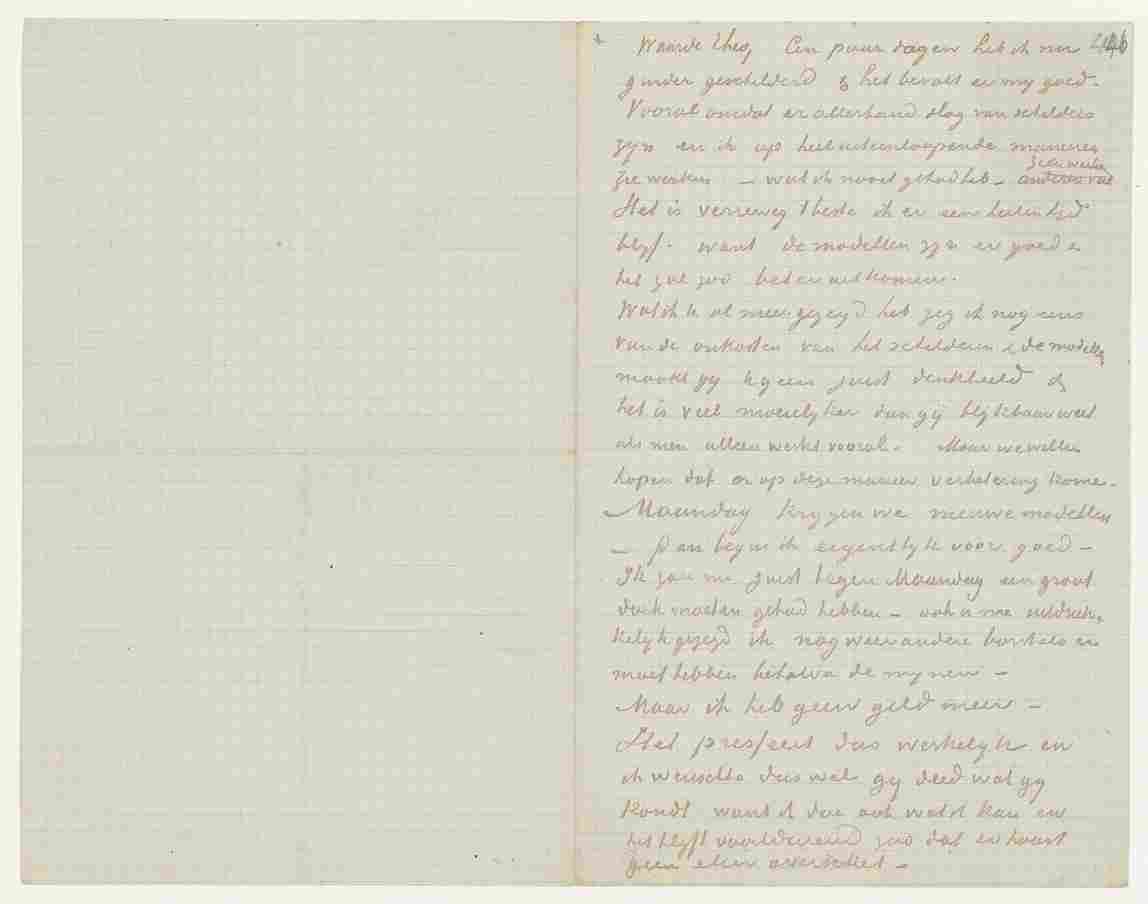 Waarde Theo, Een paar dagen heb ik nu 446
ginder geschilderd & het bevalt er my goed.
Vooral omdat er allerhand slag van schilders
zyn en ik op heel uiteenloopende manieren
zie werken – wat ik nooit gehad heb – anderen
zien werken
Het is verreweg 't beste ik er een heelen tijd
blyf. want de modellen zyn er goed &
het zal zoo beter uitkomen.
Wat ik U al meer gezegd heb zeg ik nog eens
van de onkosten van het schilderen & de modellen
maakt gy U geen juist denkbeeld &
het is veel moeielyker dan gij blijkbaar weet
als men alleen werkt vooral. Maar we willen
hopen dat er op deze manier verbetering kome.
Maandag krygen we nieuwe modellen
– Dan begin ik eigentlyk voor goed –
Ik zou nu juist tegen Maandag een groot
doek moeten gehad hebben – ook is me nadruk-
kelyk gezegd ik nog weer andere borstels en
moet hebben behalve de mynen –
Maar ik heb geen geld meer –
Het presseert dus werkelyk en
ik wenschte dus wel gy deed wat gy
kondt want ik doe ook wat ik kan en
het blyft voortdurend zoo dat er haast
geen eten overschiet –